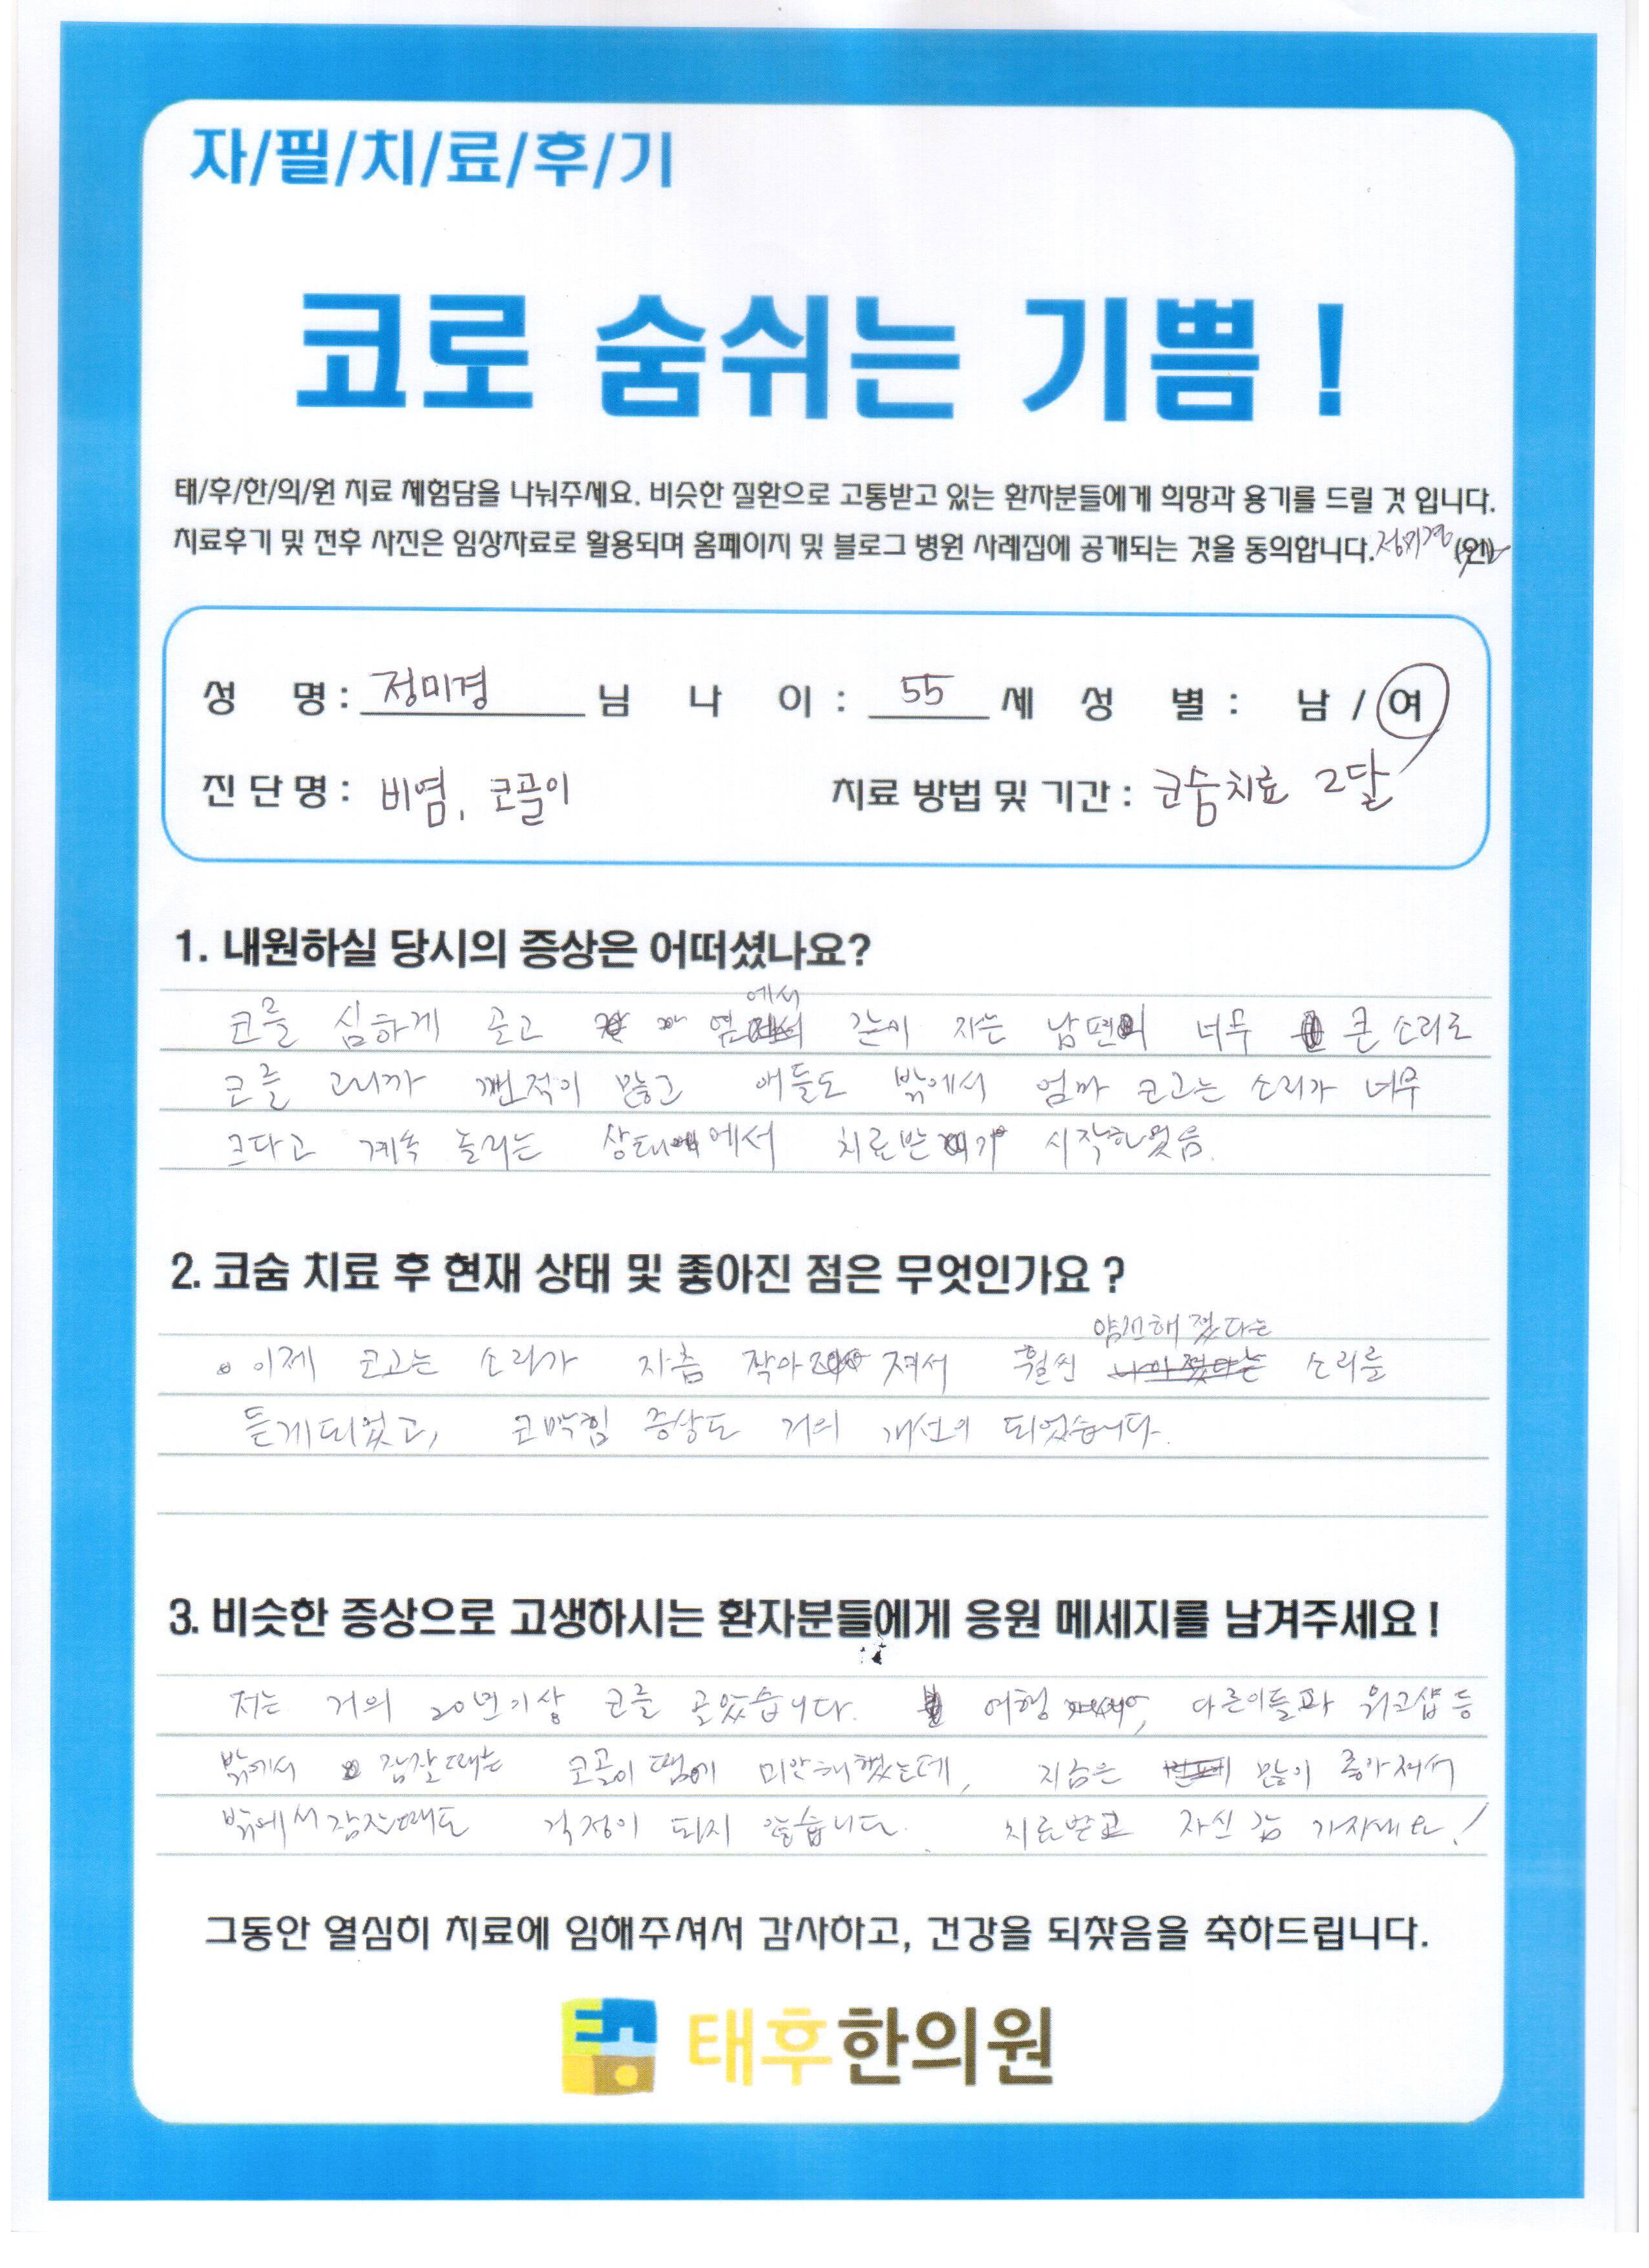 자/필/치/료/후/기
코로 숨쉬는 기쁨 !
태/후/한/의/원 치료 체험담을 나눠주세요. 비슷한 질환으로 고통받고 있는 환자분들에게 희망과 용기를 드릴 것 입니다.
치료후기 및 전후 사진은 임상자료로 활용되며 홈페이지 및 블로그 병원 사례집에 공개되는 것을 동의합니다. 정미경 (인)
성 명 : 정미경 님 나 이 : 55 세 성 별 : 남 / 여
진 단 명 : 비염, 코골이 치료 방법 및 기간 : 코숨치료 2달
1. 내원하실 당시의 증상은 어떠셨나요?
코를 심하게 골고 옆에서 같이 자는 남편이 너무 큰 소리로
코를 고니까 깬적이 많고 애들도 밖에서 엄마 코고는 소리가 너무
크다고 계속 놀리는 상태에서 치료받기 시작하였음.
2. 코숨 치료 후 현재 상태 및 좋아진 점은 무엇인가요 ?
이제 코고는 소리가 차츰 작아져서 훨씬 얌전해졌다는 소리를
듣게되었고, 코막힘 증상도 거의 개선이 되었습니다.
3. 비슷한 증상으로 고생하시는 환자분들에게 응원 메세지를 남겨주세요 !
저는 거의 20년이상 코를 골았습니다. 여행, 다른이들과 워크샵 등
밖에서 잠잘때는 코골이 땜에 미안해했는데, 지금은 많이 좋아져서
밖에서 잠잘때도 걱정이 되지 않습니다. 치료받고 자신감 가지세요!
그동안 열심히 치료에 임해주셔서 감사하고, 건강을 되찾음을 축하드립니다.
태후한의원